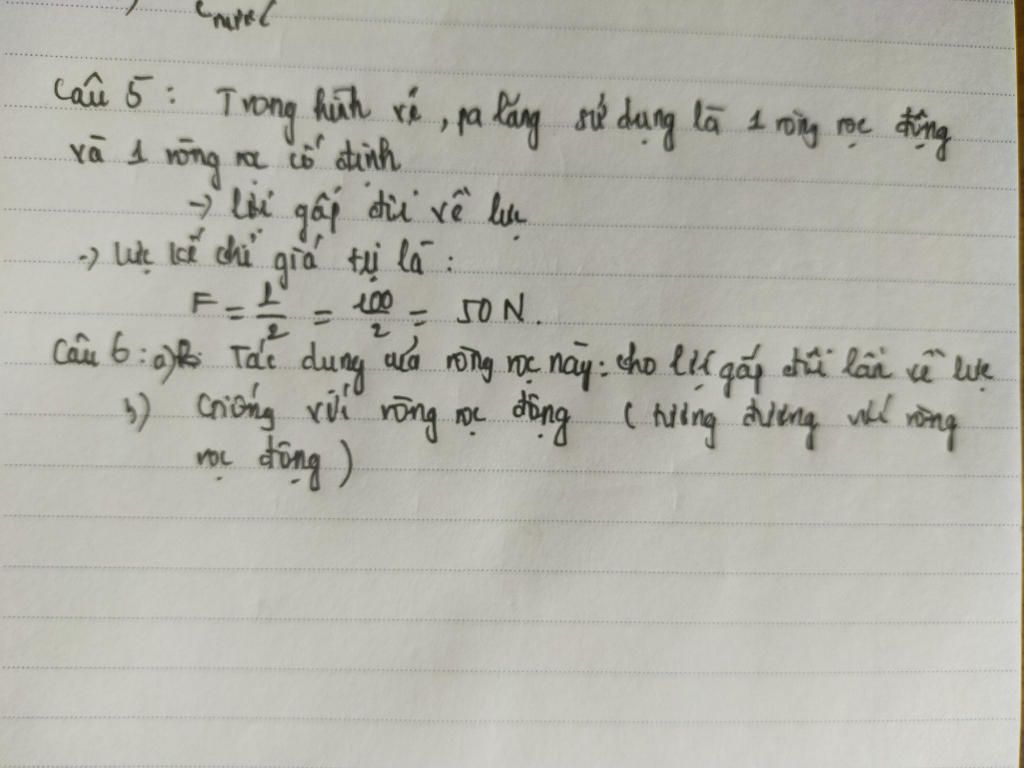 Câu 5 : Trong hình vẽ , pa lăng sử dụng là 1 ròng rọc động
và 1 ròng rọc cố định
-> lợi gấp đôi về lực
-> lực kế chỉ giá trị là :
F = 1/2 = 100/2 = 50 N.
Câu 6 : a) Tác dụng của ròng rọc này : cho lợi gấp đôi lần về lực
b) Giống với ròng rọc động ( tương đương với ròng
rọc động )